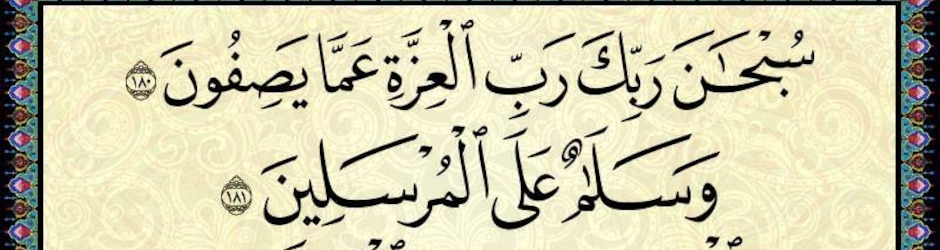 سُبْحَـٰنَ رَبِّكَ رَبِّ ٱلْعِزَّةِ عَمَّا يَصِفُونَ ١٨٠
وَسَلَـٰمٌ عَلَى ٱلْمُرْسَلِينَ ١٨١